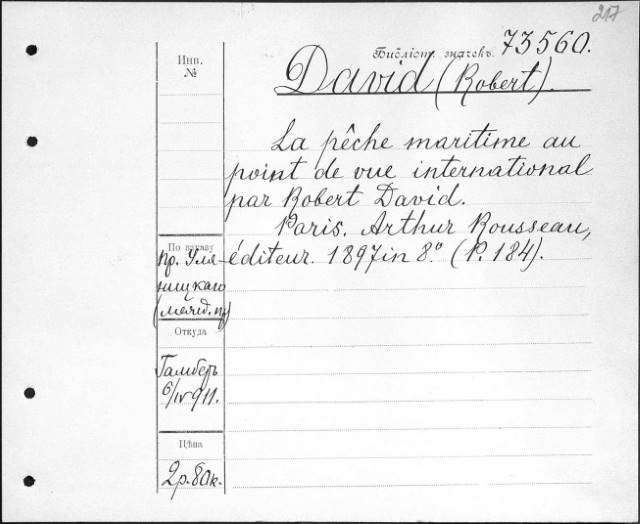 217
Библіот. значекъ. 73560.
Инв.
№
David (Robert).
La pêche maritime au
point de vue international
par Robert David.
Paris. Arthur Rousseau,
éditeur. 1897 in 8.° (P. 184).
По заказу
пр. Уля-
ницкаго
(межд. пр)
Откуда
Гамберъ
6/IV 911.
Цѣна
2 р. 80 к.